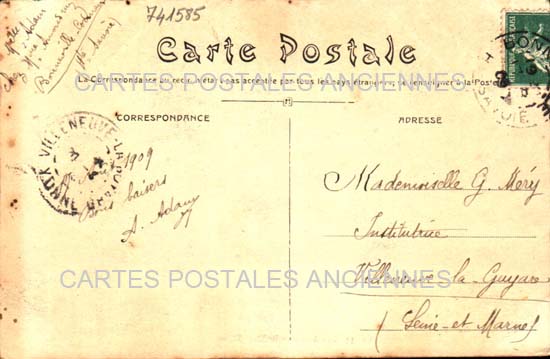 741585
Carte Postale
La Correspondance au recto n'est pas acceptée par tous les pays étrangers, se renseigner à la Poste
CORRESPONDANCE
ADRESSE
CARTES POSTALES ANCIENNES
VILLENEUVE-LA-GUYARD
YONNE
1909
Bons baisers
A. Adam
Mademoiselle G. Méry
Institutrice
Villeneuve-la-Guyard
(Seine-et-Marne)
BONN
SAVOIE
CARTES POSTALES ANCIENNES